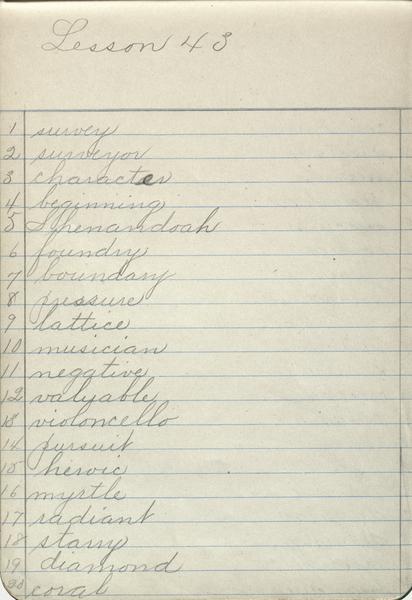 Lesson 43
1 survey
2 surveyor
3 character
4 beginning
5 Shenandoah
6 foundry
7 boundary
8 pressure
9 lattice
10 musician
11 negative
12 valuable
13 violoncello
14 pursuit
15 heroic
16 myrtle
17 radiant
18 starry
19 diamond
20 coral